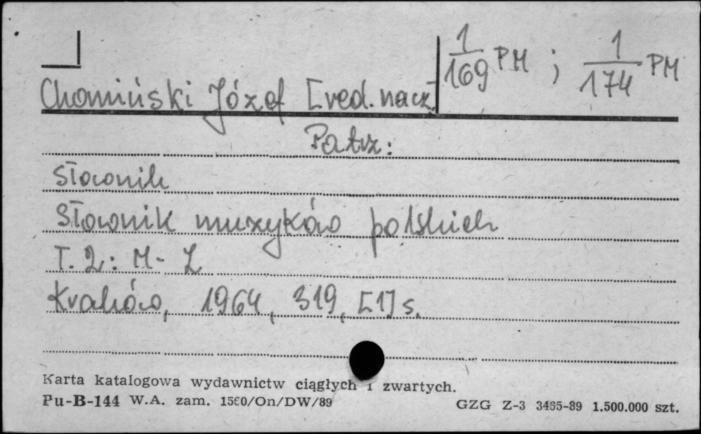 1/169 PM ; 1/174 PM
Chomiński Józef [red. nacz.]
Patrz:
Słownik
Słownik muzyków polskich
T. 2: M - Z
Kraków, 1964, 319, [1] s.
Karta katalogowa wydawnictw ciągłych i zwartych.
Pu-B-144 W.A. zam. 1560/On/DW/89 GZG Z-3 3495-89 1.500.000 szt.